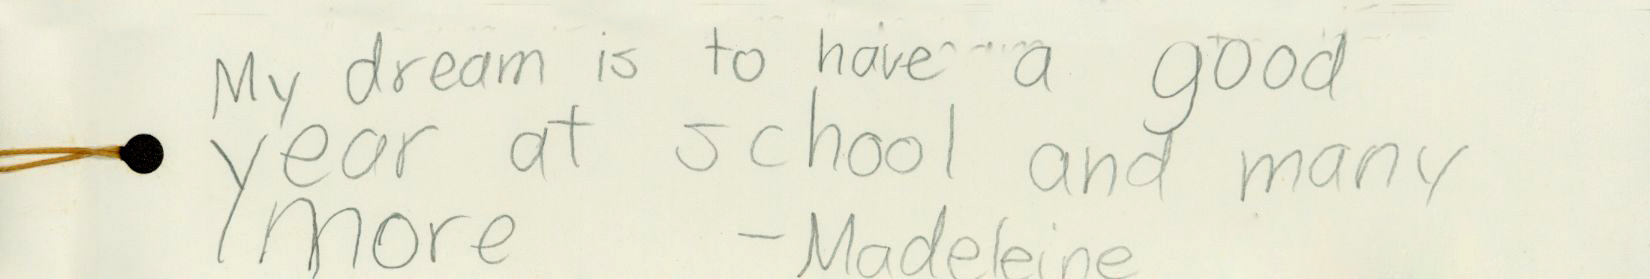 My dream is to have a good
year at school and many
more -Madeleine